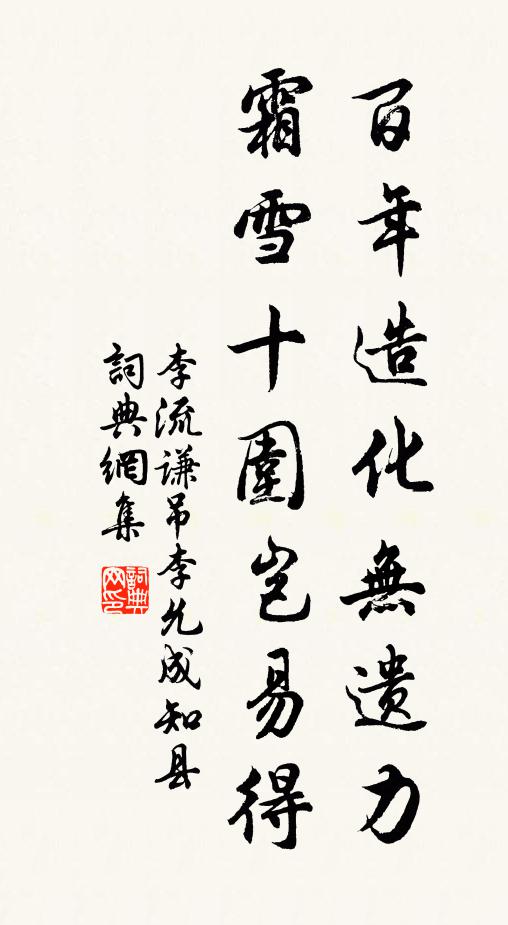 百年造化無遺力
霜雪十圍豈易得
李流謙吊李允成知县
詞典網集
詞典网印